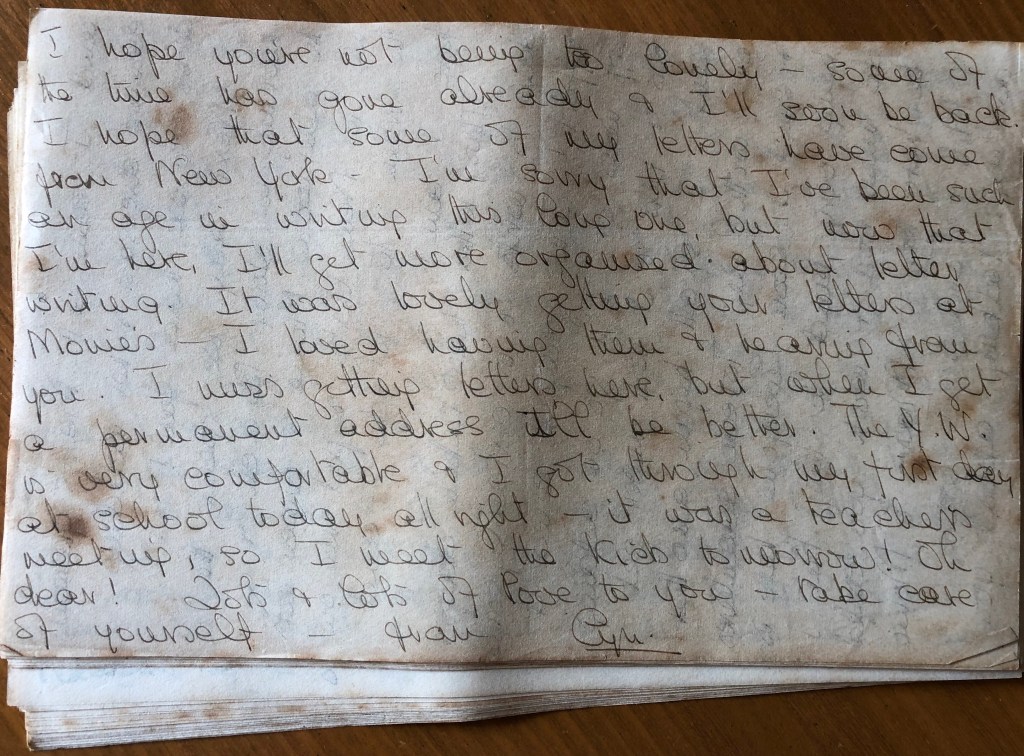 I hope you're not being to lonely - some of
the time has gone already & I'll soon be back.
I hope that some of my letters have come
from New York - I'm sorry that I've been such
an age in writing this long one, but now that
I'm here, I'll get more organised about letter
writing. It was lovely getting your letters at
- I loved having them & hearing from
you. I miss getting letters here, but when I get
a permanent address I'll be better. The Y.W.
is very comfortable & I got through my first day
at school today all right - it was a teachers
meeting, so I meet the kids tomorrow! Oh
dear! Lots & lots of love to you - take care
of yourself - from